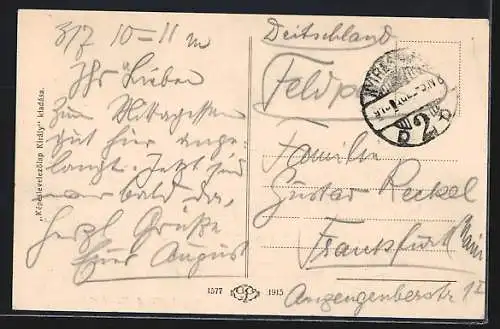 3/7 10-11 m
Ihr Lieben
Zum Mittagessen
gut hier ange-
langt. Jetzt sind
wir bald da,
herzl Grüße
Euer August
"Képeslevelezőlap Király" kiadása.
1577 1915
Deutschland
Feldp
Familie
Gustav Reckel
Frankfurt Main
Anzengruberstr 1